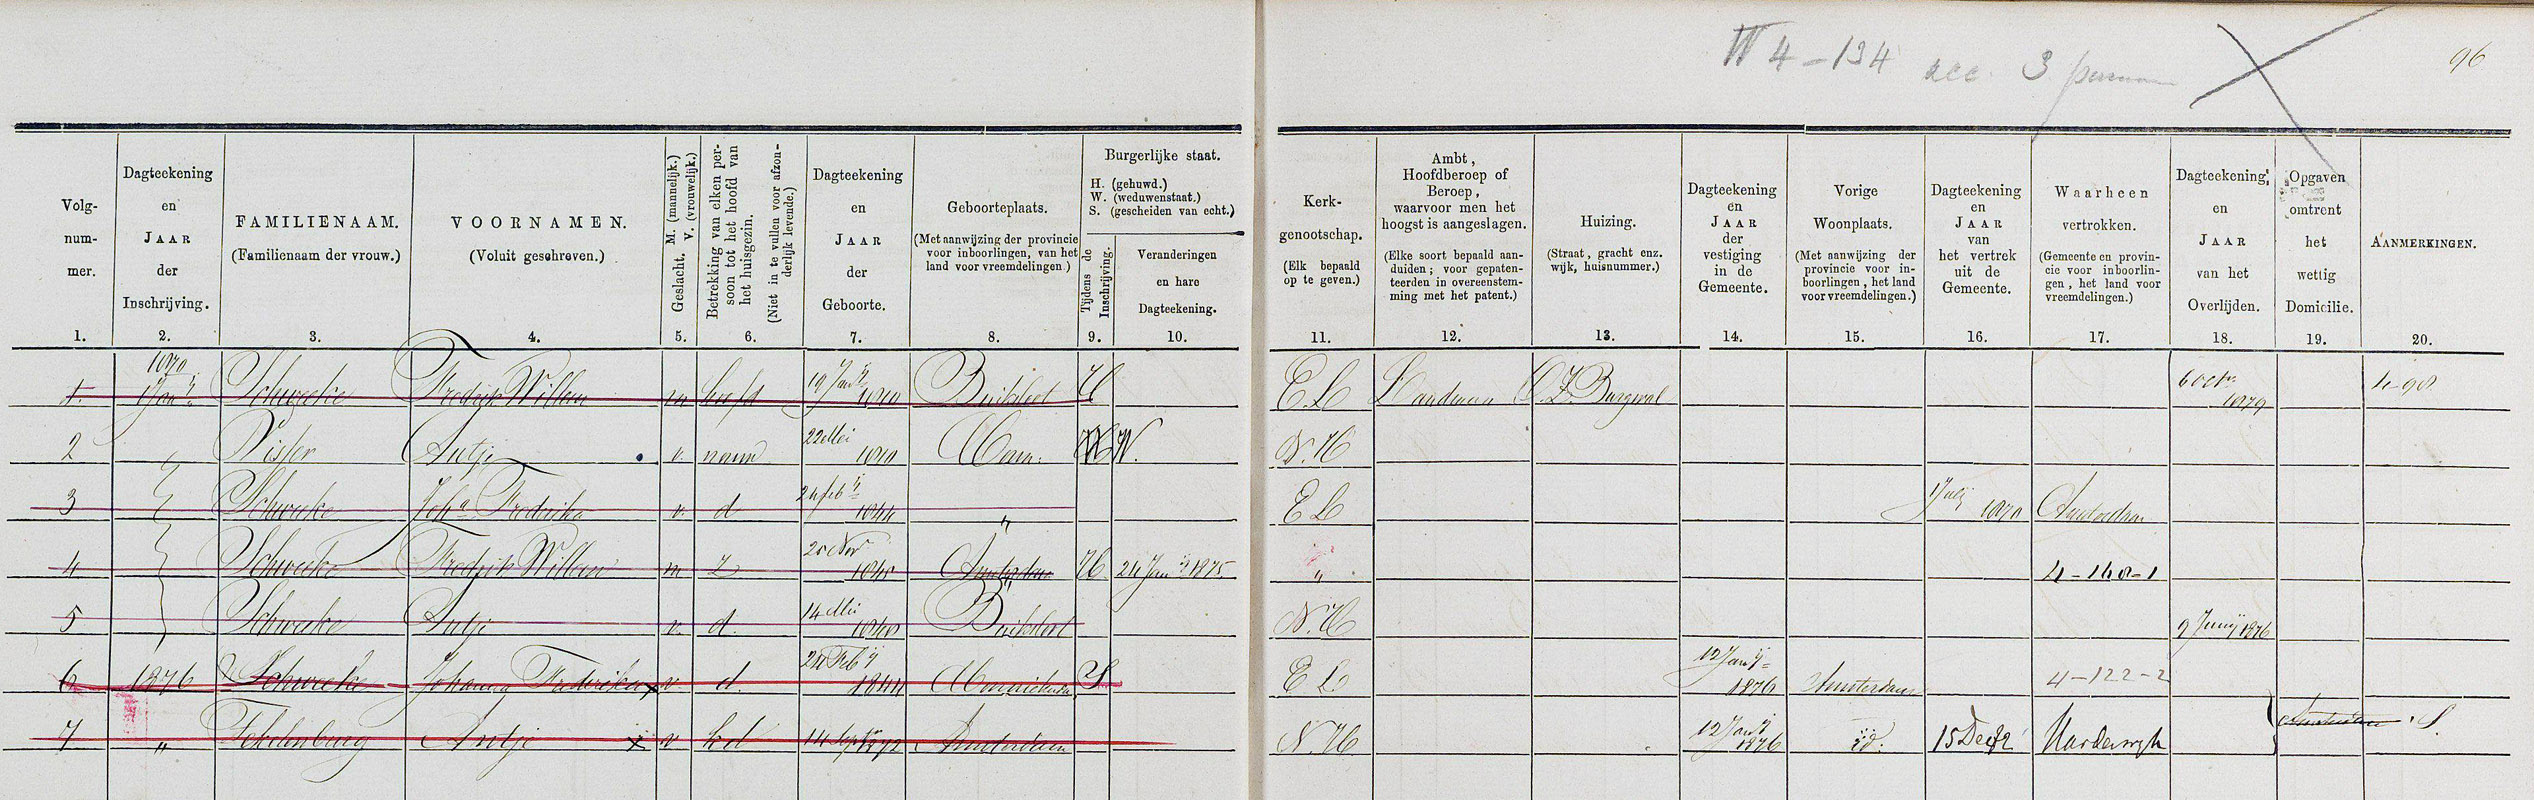 W 4-134 acc. 3
96
Volg-
num-
mer.
1.
Dagteekening
en
JAAR
der
Inschrijving.
2.
FAMILIENAAM.
(Familienaam der vrouw.)
3.
VOORNAMEN.
(Voluit geschreven.)
4.
Geslacht. M. (mannelijk.)
V. (vrouwelijk.)
5.
Betrekking van elken per-
soon tot het hoofd van
het huisgezin.
(Niet in te vullen voor afzon-
derlijk levende.)
6.
Dagteekening
en
JAAR
der
Geboorte.
7.
Geboorteplaats.
(Met aanwijzing der provincie
voor inboorlingen, van het
land voor vreemdelingen.)
8.
Burgerlijke staat.
H. (gehuwd.)
W. (weduwenstaat.)
S. (gescheiden van echt.)
Tijdens de
Inschrijving.
9.
Veranderingen
en hare
Dagteekening.
10.
Kerk-
genootschap.
(Elk bepaald
op te geven.)
11.
Ambt,
Hoofdberoep of
Beroep,
waarvoor men het
hoogst is aangeslagen.
(Elke soort bepaald aan-
duiden; voor gepaten-
teerden in overeenstem-
ming met het patent.)
12.
Huizing.
(Straat, gracht enz.
wijk, huisnummer.)
13.
Dagteekening
en
JAAR
der
vestiging
in de
Gemeente.
14.
Vorige
Woonplaats.
(Met aanwijzing der
provincie voor in-
boorlingen, het land
voor vreemdelingen.)
15.
Dagteekening
en
JAAR
van
het vertrek
uit de
Gemeente.
16.
Waarheen
vertrokken.
(Gemeente en provin-
cie voor inboorlin-
gen, het land voor
vreemdelingen.)
17.
Dagteekening,
en
JAAR
van het
Overlijden.
18.
Opgaven
omtrent
het
wettig
Domicilie.
19.
AANMERKINGEN.
20.
1 1870 1 Janij Schweeke Fredrik Willem m hoofd 19 Janij 1810 Buiksloot H E.L Landman O.Z. Burgwal 6 Octr 1879 4-98
2 Visser Antje v. vrouw 22 Mei 1810 Mon: H W. N.H
3 Schweeke Joha Fredrika v. d 24 Feb ij 1844 " E L 1 Julij 1870 Amsterdam
4 Schweeke Fredrik Willem m Z 20 Nov Amsterdam H 24 Janij 1875 " 4-148-1
5 Schweeke Antje v. d. 14 Mei Buiksloot N.H 9 Junij 1876
6 1876 Schweeke Johanna Frederika v d. 24 Feb ij 1844 Monnickendam S E L 12 Janij 1876 Amsterdam 4-122-2
7 " Teklenburg Antje v kd 14 Sept 1872 Amsterdam N.H 12 Janij 1876 id. 15 Dec 82 Harderwijk Amsterdam S.